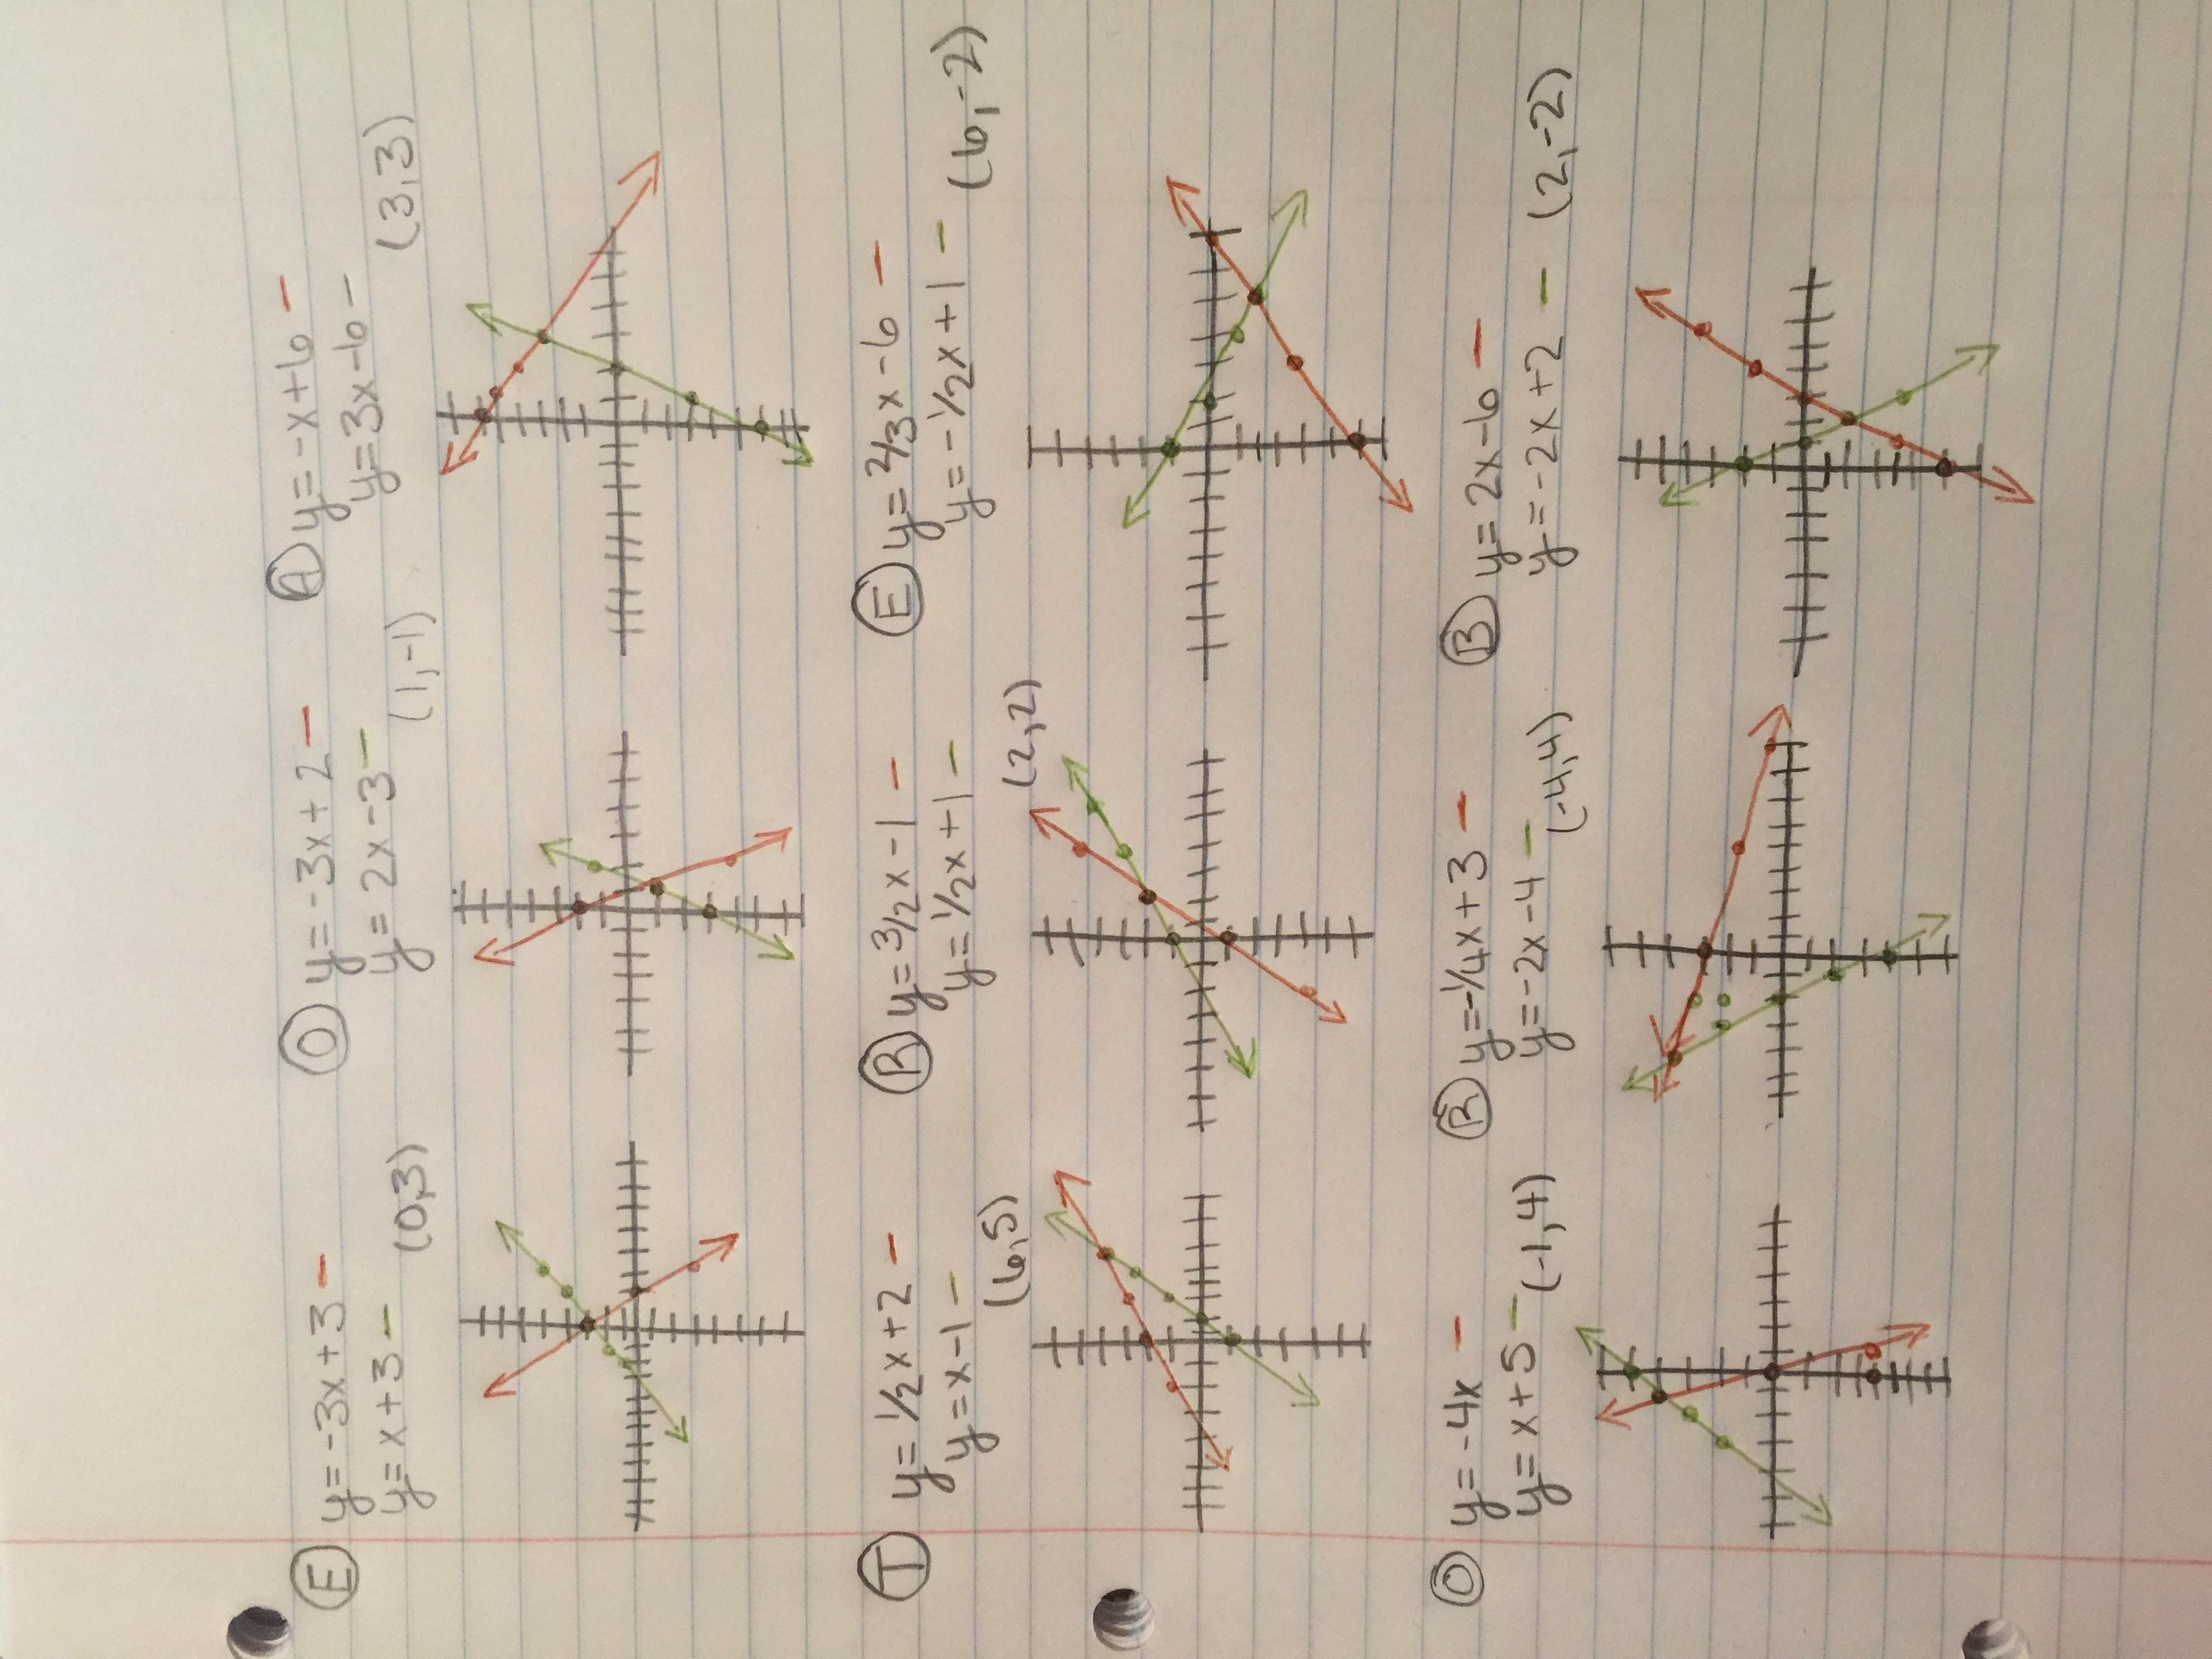 E y=-3x+3
y=x+3
(0,3)
O y=-3x+2
y=2x-3
(1,-1)
A y=-x+6
y=3x-6
(3,3)
T y=1/2x+2
y=x-1
(6,5)
R y=3/2x-1
y=1/2x+1
(2,2)
E y=2/3x-6
y=-1/2x+1
(6,-2)
O y=-4x
y=x+5 (-1,4)
R y=-1/4x+3
y=-2x-4 (-4,4)
B y=2x-6
y=-2x+2 (2,-2)